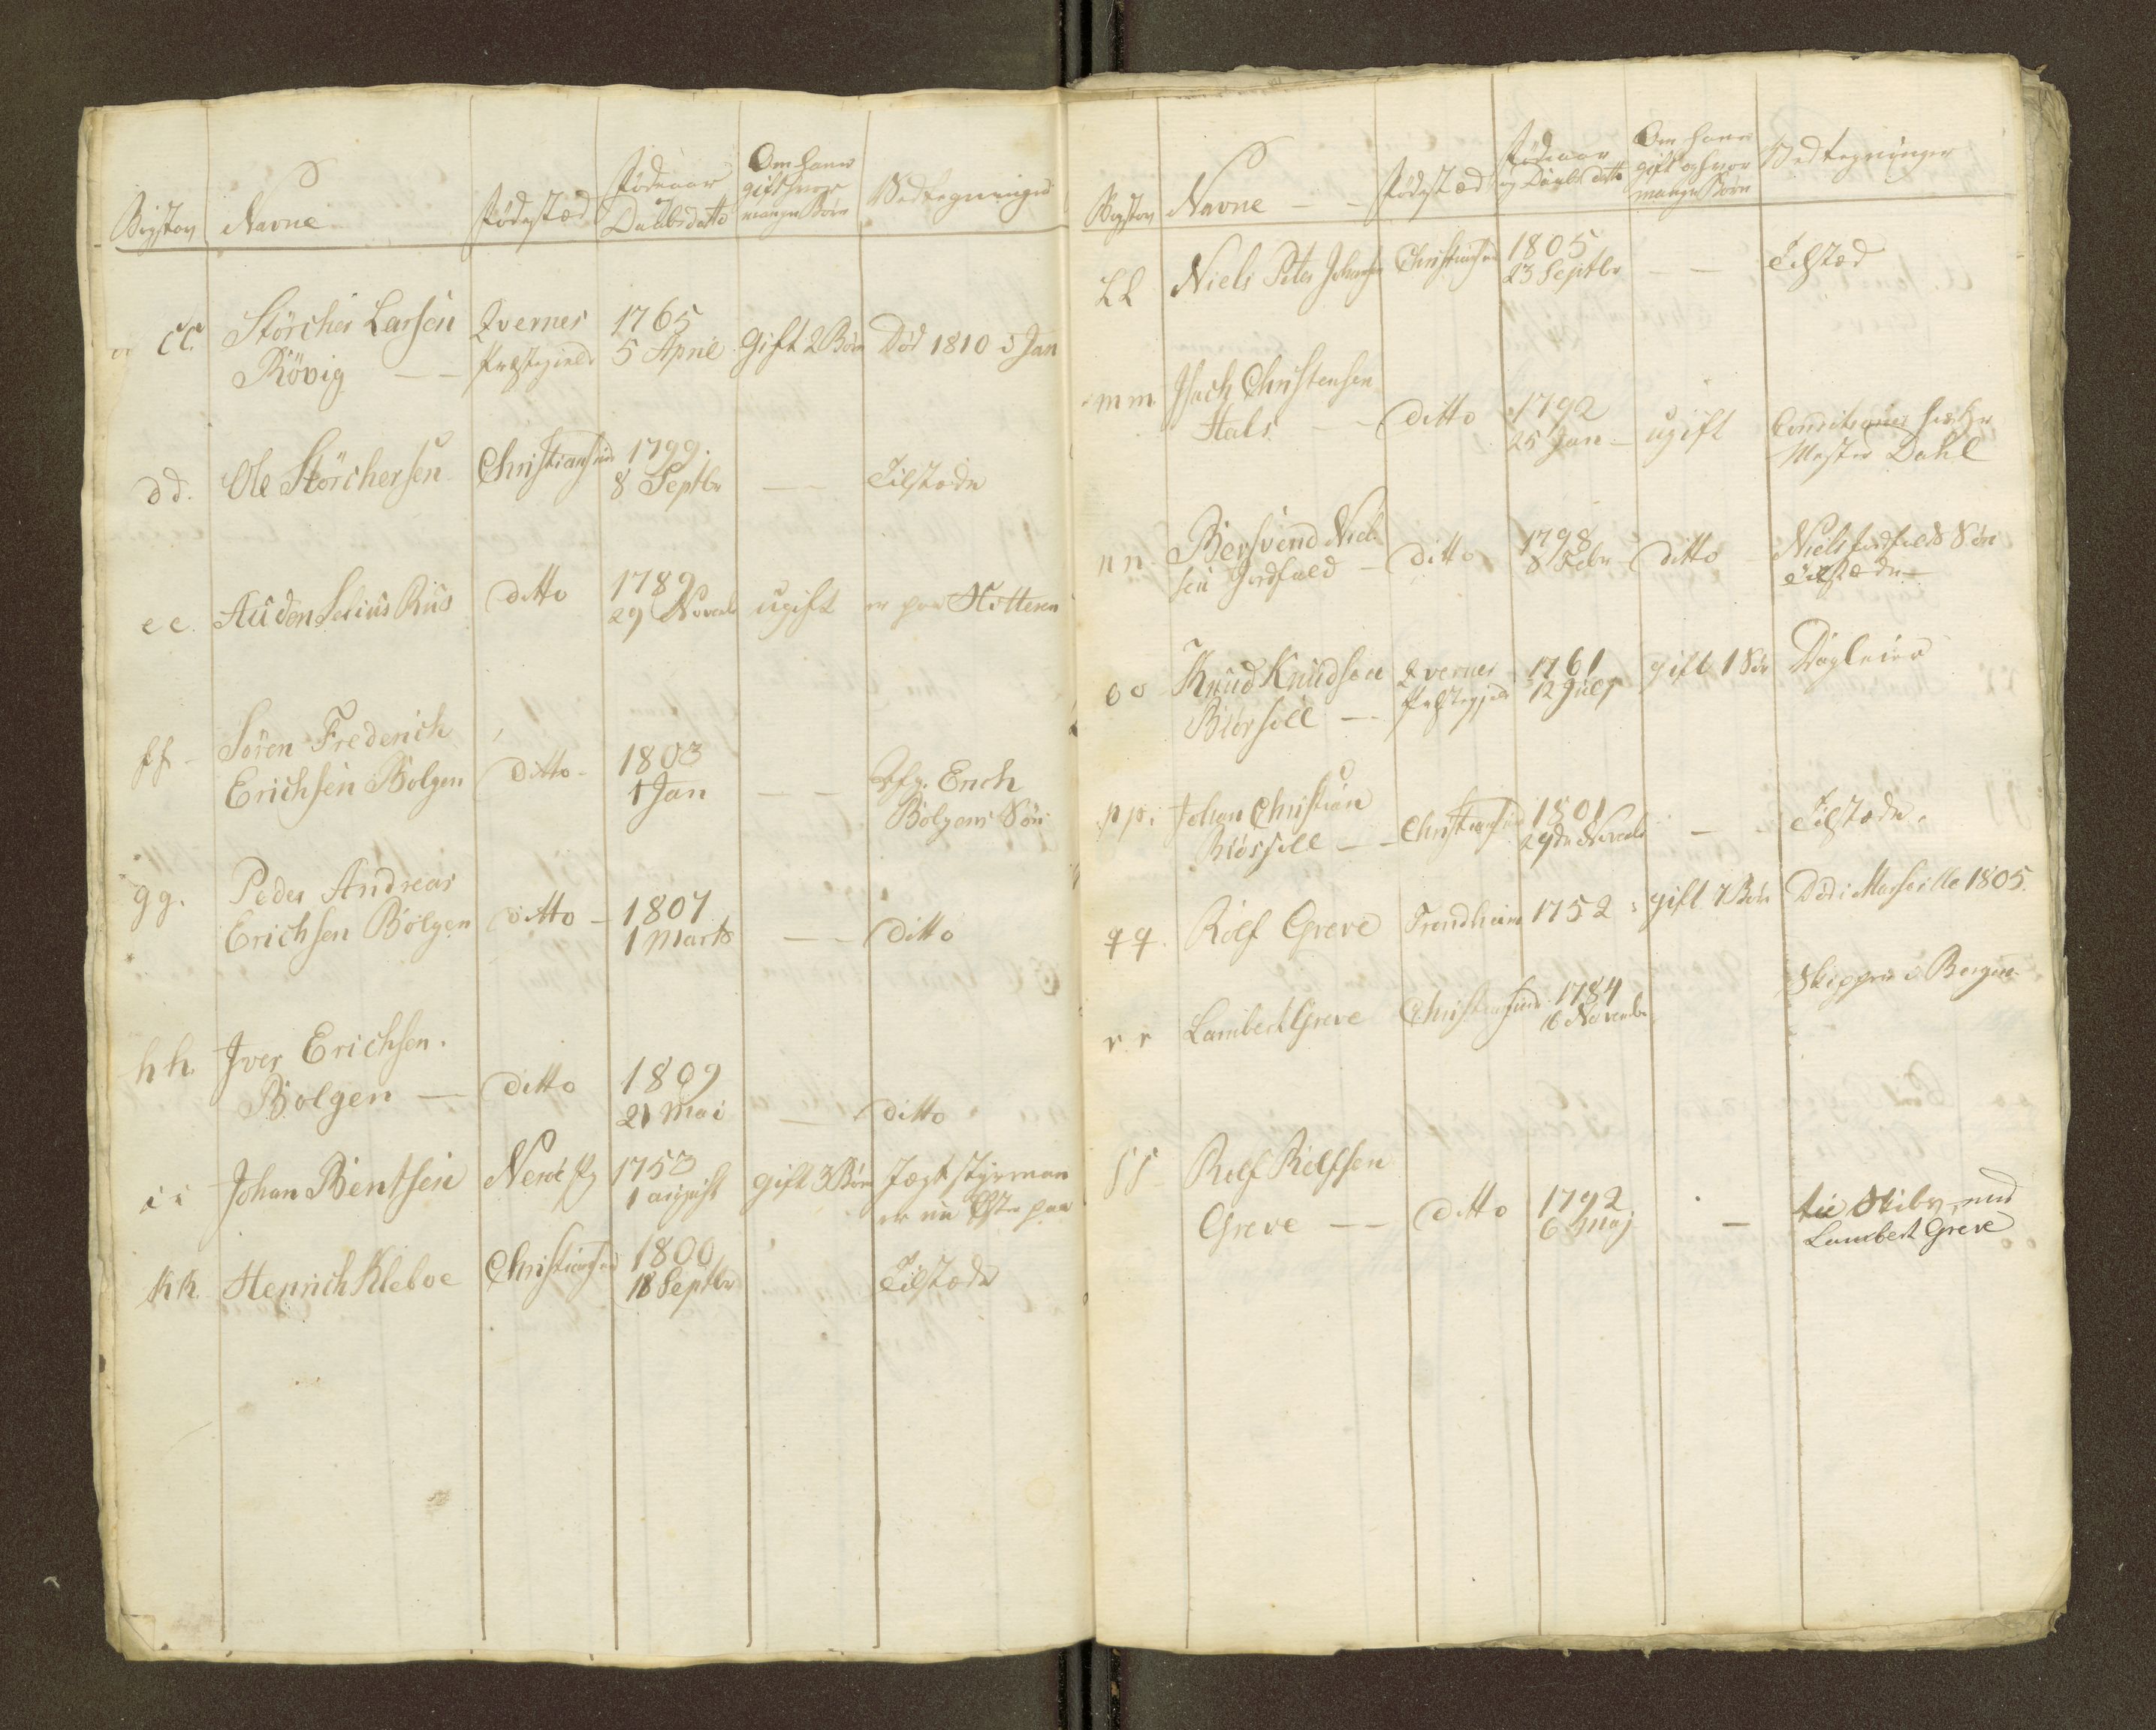 Bogstav Navne Fødested Fødeaar og Daabsdatto Om han er gift hvor mange Børn Vedtegninger
cc. Störcher Larsen Qvernes 1765
Rövig — — Præstegield 5 April Gift 2 Børn Död 1810 5 Jan
dd. Ole Störchersen Christiansund 1799.
8 Septbr — — Tilstæde
ee. Auden Selius Rus ditto 1789
29 Novemb ugift er paa Hitteren
ff - Sören Frederich
Erichsen Bolgen ditto - 1803
1 Jan — — Erich
Bolgens Sön
gg. Peder Andreas
Erichsen Bolgen ditto - 1807
1 Marts — — ditto
hh. Iver Erichsen.
Bolgen — ditto 1809
21 Mai — ditto
ii Johan Bentsen 1753
1 august gift 3 Børn Jægt styrman
er nu
kk. Henrich Kleboe Christiansund 1800
18 Septbr Tilstæde
Bogstav Navne — - Fødested Fødeaar og Daabs datto Om han er gift og hvor mange Børn Vedtegninger
LL Niels Peter Johansen Christiansund 1805
23 Septbr — — Tilstæd
mm. Isach Christensen
Hals — - ditto 1792
25 Jan - ugift
Mester Dahl
nn. Bersvend Niel-
sen Jordfald - ditto 1798
8 Febr - ditto Niels Jordfalds Sön
Tilstæde
oo Knud Knudsen Qvernes 1761 gift 1 Sön Dagleier
— Præstegield 12 July
pp. Johan Christian
— - Christiansund 1801
29de Novemb — Tilstæde.
qq. Rolf Greve Trondheim 1752 : gift 7 Børn Död i Marseille 1805.
rr Lambert Greve Christiansund 1784
16 November Skipper i Bergen
ss Rolf Rolfsen
Greve — — ditto 1792
6 Maj — til Skibs med
Lambert Greve